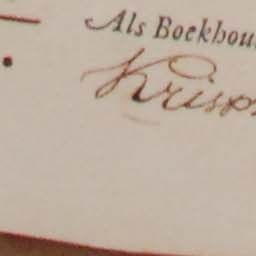 Als Boekhou
Krisp